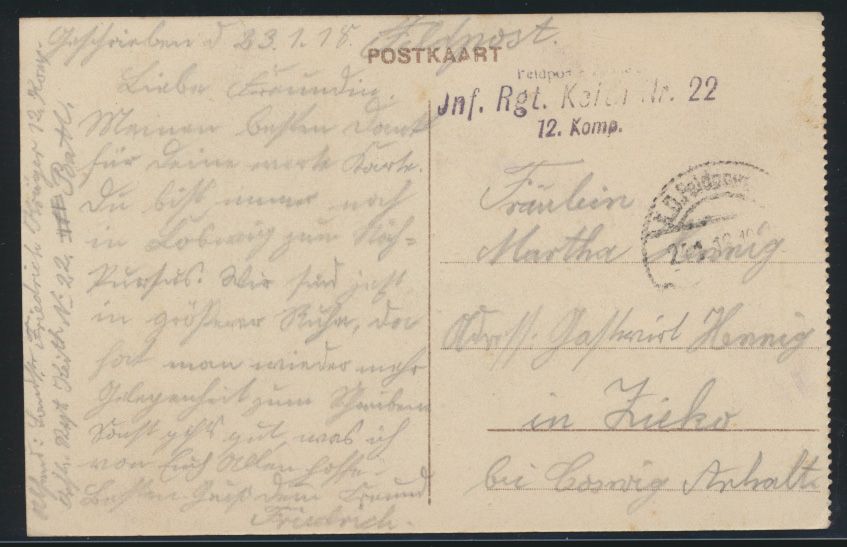 Geschrieben d 23.1.18. Feldpost.
POSTKAART
Liebe Freundin.
Meinen besten Dank
für deine werte Karte.
Du bist immer noch
in Coswig zum Näh-
Kursus. Wir sind jetzt
in größerer Ruhe, da
hat man wieder mehr
Gelegenheit zum Schreiben
Sonst geht's gut, was ich
von Euch Allen hoffe.
Besten Gruß dein Freund
Friedrich.
Feldpost
Inf. Rgt. Keith Nr. 22
12. Komp.
K.D.Feldpost
Fräulein
Martha Hennig
Adress. Gastwirt Hennig
in Zieko
bei Coswig Anhalt
Absend: Landst. Friedrich Krüger 12. Komp.
Inftr. Regt. Keith N. 22. III Batl.